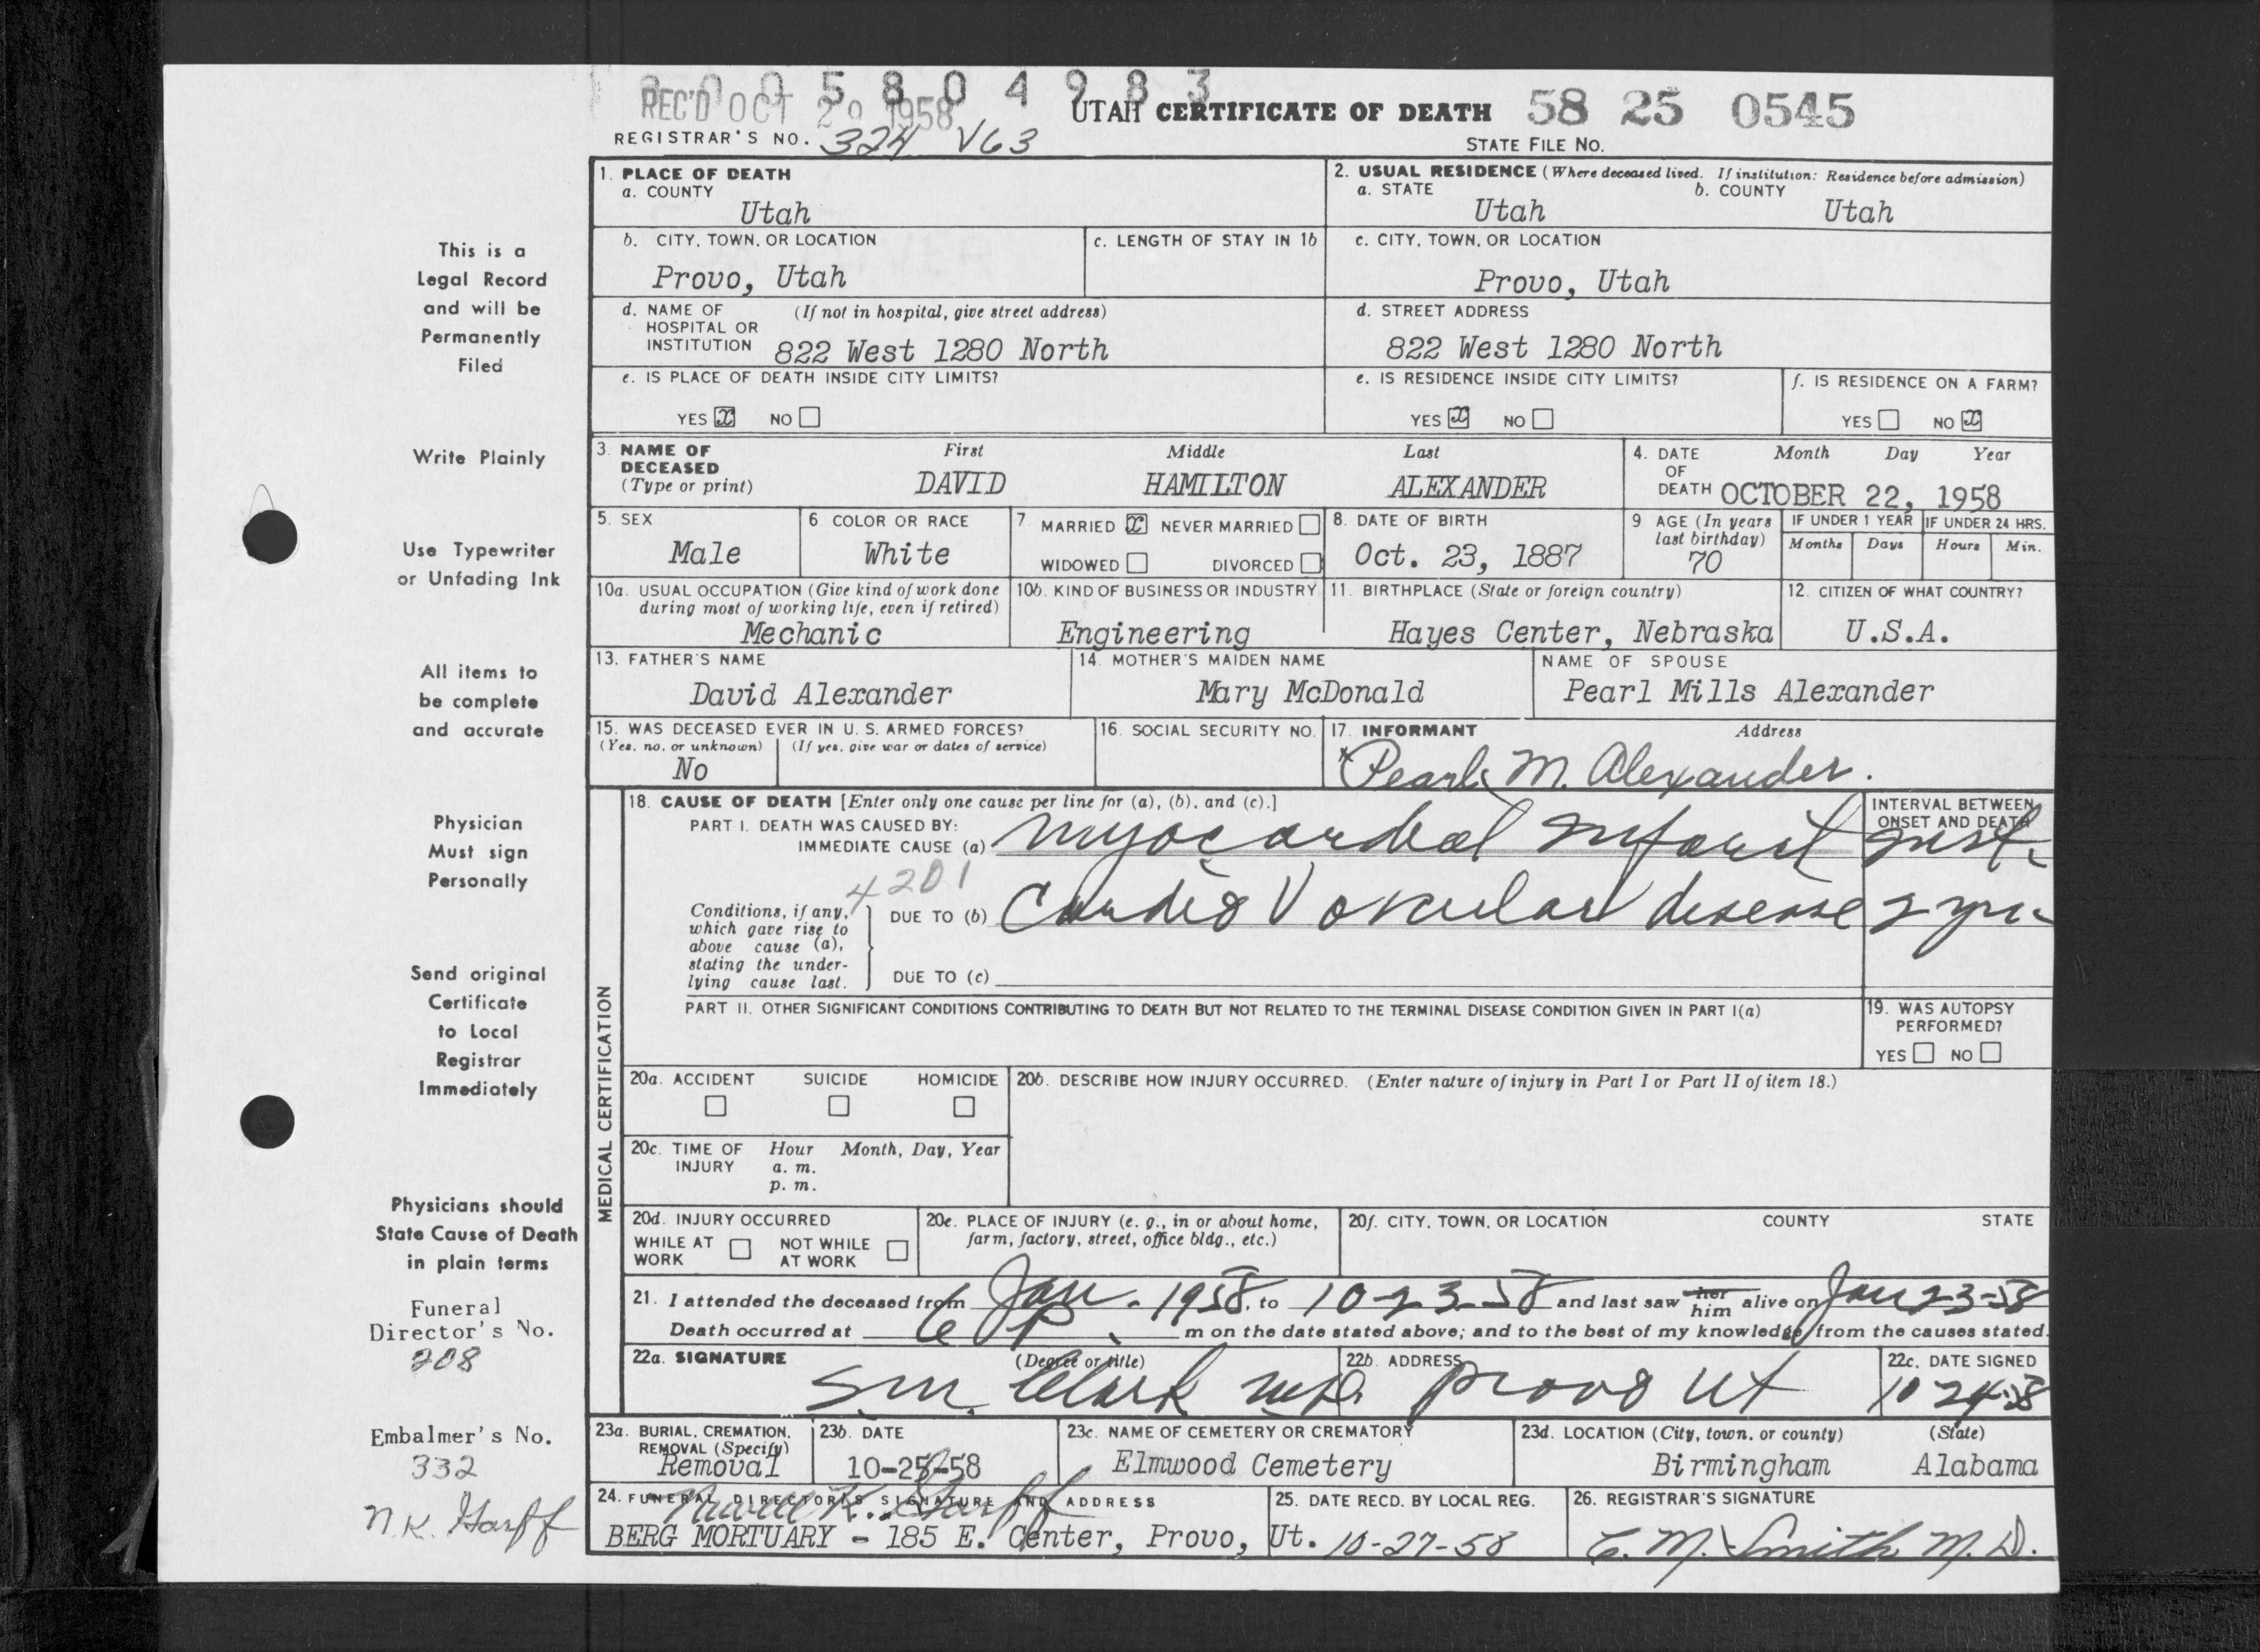 2 0 0 5 8 0 4 9 8 3
REC'D OCT 29 1958 UTAH CERTIFICATE OF DEATH 58 25 0545
REGISTRAR'S NO. 324 V63 STATE FILE NO.
1. PLACE OF DEATH
a. COUNTY
Utah
2. USUAL RESIDENCE (Where deceased lived. If institution: Residence before admission)
a. STATE b. COUNTY
Utah Utah
b. CITY, TOWN, OR LOCATION c. LENGTH OF STAY IN 1b
Provo, Utah
c. CITY, TOWN, OR LOCATION
Provo, Utah
d. NAME OF (If not in hospital, give street address)
HOSPITAL OR
INSTITUTION 822 West 1280 North
d. STREET ADDRESS
822 West 1280 North
e. IS PLACE OF DEATH INSIDE CITY LIMITS?
YES x NO
e. IS RESIDENCE INSIDE CITY LIMITS?
YES x NO
f. IS RESIDENCE ON A FARM?
YES NO x
3. NAME OF First Middle Last
DECEASED
(Type or print) DAVID HAMILTON ALEXANDER
4. DATE Month Day Year
OF
DEATH OCTOBER 22, 1958
5. SEX
Male
6. COLOR OR RACE
White
7. MARRIED x NEVER MARRIED
WIDOWED DIVORCED
8. DATE OF BIRTH
Oct. 23, 1887
9 AGE (In years
last birthday)
70
IF UNDER 1 YEAR IF UNDER 24 HRS.
Months Days Hours Min.
10a. USUAL OCCUPATION (Give kind of work done
during most of working life, even if retired)
Mechanic
10b. KIND OF BUSINESS OR INDUSTRY
Engineering
11. BIRTHPLACE (State or foreign country)
Hayes Center, Nebraska
12. CITIZEN OF WHAT COUNTRY?
U.S.A.
13. FATHER'S NAME
David Alexander
14. MOTHER'S MAIDEN NAME
Mary McDonald
NAME OF SPOUSE
Pearl Mills Alexander
15. WAS DECEASED EVER IN U. S. ARMED FORCES?
(Yes, no, or unknown) (If yes, give war or dates of service)
No
16. SOCIAL SECURITY NO.
17. INFORMANT Address
x Pearl M. Alexander.
MEDICAL CERTIFICATION
18. CAUSE OF DEATH [Enter only one cause per line for (a), (b), and (c).]
INTERVAL BETWEEN
ONSET AND DEATH
PART I. DEATH WAS CAUSED BY:
IMMEDIATE CAUSE (a) Myocardial Infarct inst.
4201
Conditions, if any,
which gave rise to
above cause (a),
stating the under-
lying cause last.
DUE TO (b) Cardio Vascular disease 2 yrs
DUE TO (c)
PART II. OTHER SIGNIFICANT CONDITIONS CONTRIBUTING TO DEATH BUT NOT RELATED TO THE TERMINAL DISEASE CONDITION GIVEN IN PART I(a)
19. WAS AUTOPSY
PERFORMED?
YES NO
20a. ACCIDENT SUICIDE HOMICIDE
20b. DESCRIBE HOW INJURY OCCURRED. (Enter nature of injury in Part I or Part II of item 18.)
20c. TIME OF Hour Month, Day, Year
INJURY a. m.
p. m.
20d. INJURY OCCURRED
WHILE AT NOT WHILE
WORK AT WORK
20e. PLACE OF INJURY (e. g., in or about home,
farm, factory, street, office bldg., etc.)
20f. CITY, TOWN, OR LOCATION COUNTY STATE
21. I attended the deceased from Jan. 1958, to 10-23-58 and last saw her him alive on Jan 23-58
Death occurred at 6 P. m on the date stated above; and to the best of my knowledge, from the causes stated.
22a. SIGNATURE (Degree or title)
S.M. Clark M.D.
22b. ADDRESS
Provo Ut
22c. DATE SIGNED
10-24-58
23a. BURIAL, CREMATION,
REMOVAL (Specify)
Removal
23b. DATE
23c. NAME OF CEMETERY OR CREMATORY
Elmwood Cemetery
23d. LOCATION (City, town, or county) (State)
Birmingham Alabama
24. FUNERAL DIRECTOR'S SIGNATURE AND ADDRESS
BERG MORTUARY - 185 E. Center, Provo, Ut.
25. DATE RECD. BY LOCAL REG.
10-27-58
26. REGISTRAR'S SIGNATURE
C. M. Smith M. D.
This is a
Legal Record
and will be
Permanently
Filed
Write Plainly
Use Typewriter
or Unfading Ink
All items to
be complete
and accurate
Physician
Must sign
Personally
Send original
Certificate
to Local
Registrar
Immediately
Physicians should
State Cause of Death
in plain terms
Funeral
Director's No.
208
Embalmer's No.
332